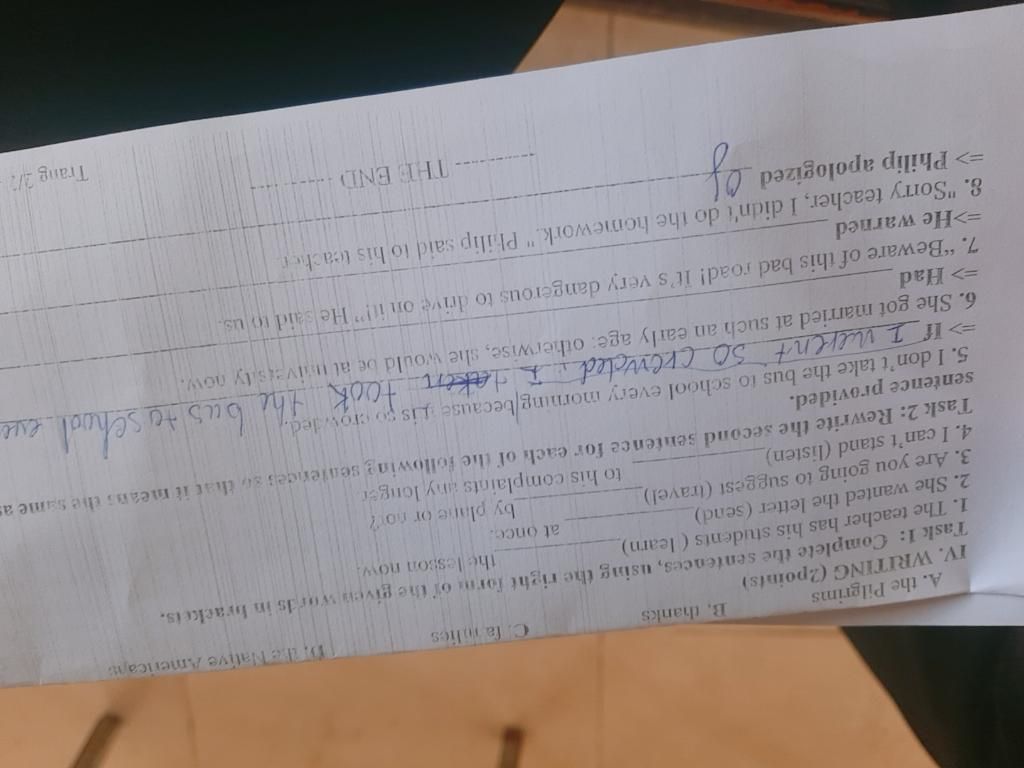 A. the Pilgrims B. thanks C. families D. the Native Americans
IV. WRITING (2points)
Task 1: Complete the sentences, using the right form of the given words in brackets.
1. The teacher has his students ( learn)__________the lesson now.
2. She wanted the letter (send)__________ at once.
3. Are you going to suggest (travel)__________by plane or not?
4. I can't stand (listen)__________ to his complaints any longer
Task 2: Rewrite the second sentence for each of the following sentences so that it means the same as
sentence provided.
5. I don't take the bus to school every morning because it is so crowded.
=> If I weren't so crowded, I took the bus to school
6. She got married at such an early age: otherwise, she would be at university now.
=> Had
7. "Beware of this bad road! It's very dangerous to drive on it!" He said to us.
=>He warned
8. "Sorry teacher, I didn't do the homework." Philip said to his teacher.
=> Philip apologized of
---------- THE END ----------